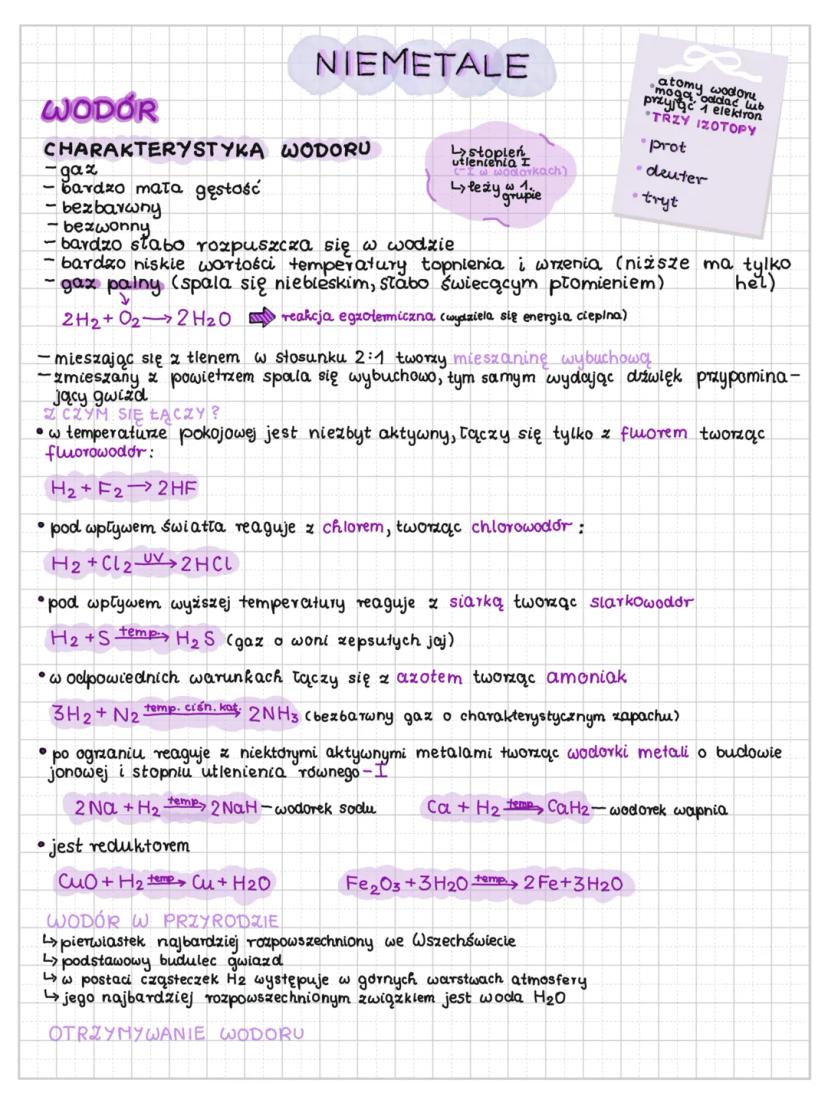 NIEMETALE
WODÓR
• atomy wodoru
mogą oddać lub
przyjąć 1 elektron
• TRZY IZOTOPY
• prot
• deuter
• tryt
↳ stopień
utlenienia I
(-I w wodorkach)
↳ leży w 1.
grupie
CHARAKTERYSTYKA WODORU
- gaz
- bardzo mała gęstość
- bezbarwny
- bezwonny
- bardzo słabo rozpuszcza się w wodzie
- bardzo niskie wartości temperatury topnienia i wrzenia (niższe ma tylko
hel)
- gaz palny (spala się niebieskim, słabo świecącym płomieniem)
2H₂ + O₂ → 2H₂O ⇒ reakcja egzotermiczna (wydziela się energia cieplna)
- mieszając się z tlenem w stosunku 2:1 tworzy mieszaninę wybuchową
- zmieszany z powietrzem spala się wybuchowo, tym samym wydając dźwięk przypomina-
jący gwizd
Z CZYM SIĘ ŁĄCZY?
• w temperaturze pokojowej jest niezbyt aktywny, łączy się tylko z fluorem tworząc
fluorowodór:
H₂ + F₂ → 2HF
• pod wpływem światła reaguje z chlorem, tworząc chlorowodór:
H₂ + Cl₂ UV→ 2HCl
• pod wpływem wyższej temperatury reaguje z siarką tworząc siarkowodór
H₂ + S temp.→ H₂S (gaz o woni zepsutych jaj)
• w odpowiednich warunkach łączy się z azotem tworząc amoniak
3H₂ + N₂ temp. ciśn. kat.→ 2NH₃ (bezbarwny gaz o charakterystycznym zapachu)
• po ogrzaniu reaguje z niektórymi aktywnymi metalami tworząc wodorki metali o budowie
jonowej i stopniu utlenienia równego -I
2Na + H₂ temp.→ 2NaH - wodorek sodu Ca + H₂ temp.→ CaH₂ - wodorek wapnia
• jest reduktorem
CuO + H₂ temp.→ Cu + H2O Fe₂O₃ + 3H₂O temp.→ 2Fe + 3H₂O
WODÓR W PRZYRODZIE
↳ pierwiastek najbardziej rozpowszechniony we Wszechświecie
↳ podstawowy budulec gwiazd
↳ w postaci cząsteczek H₂ występuje w górnych warstwach atmosfery
↳ jego najbardziej rozpowszechnionym związkiem jest woda H₂O
OTRZYMYWANIE WODORU